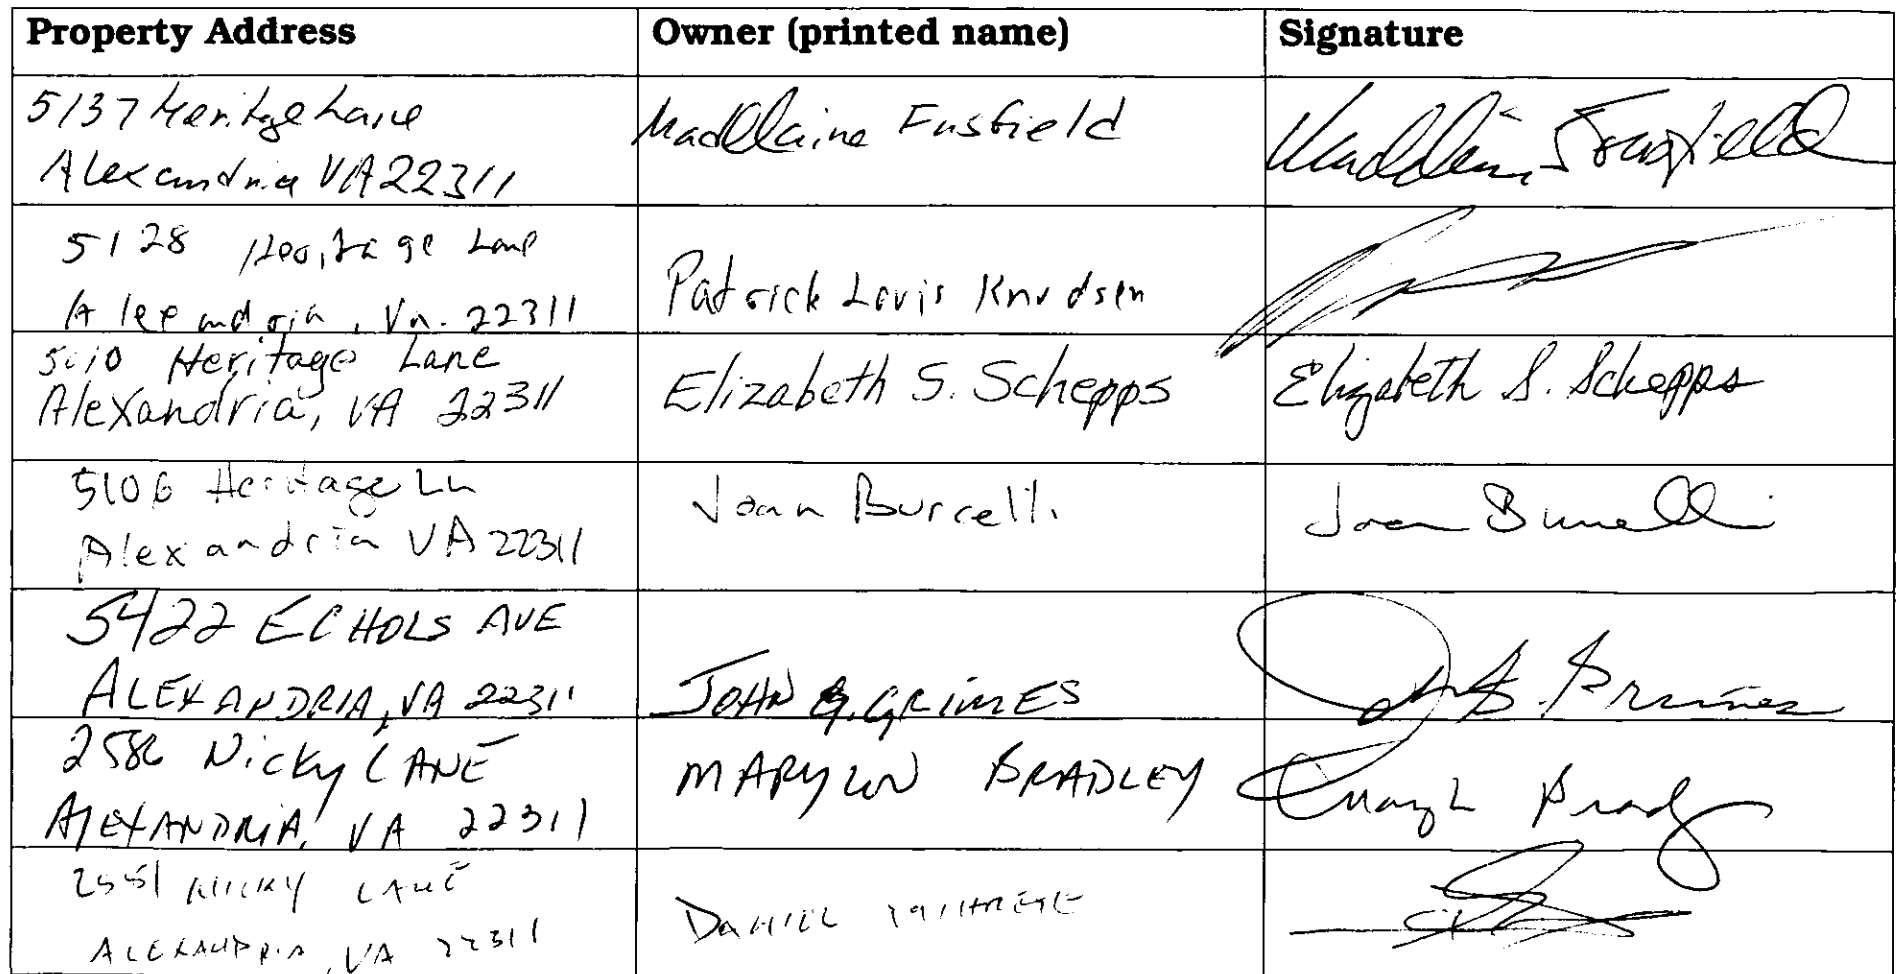 Property Address Owner (printed name) Signature
5137 Heritage Lane
Alexandria VA 22311
Madelaine Fusfield
5128 Heritage Lane
Alexandria, Va. 22311
Patrick Louis Knudsen
5010 Heritage Lane
Alexandria, VA 22311
Elizabeth S. Schepps
Elizabeth S. Schepps
5106 Heritage Ln
Alexandria VA 22311
Joan Burcelli
Joan Burcelli
5422 ECHOLS AVE
ALEXANDRIA, VA 22311
JOHN G. GRIMES
Grimes
2586 Nicky LANE
ALEXANDRIA, VA 22311
MARYLOU BRADLEY
2551 NICKY LANE
ALEXANDRIA, VA 22311
DANIEL